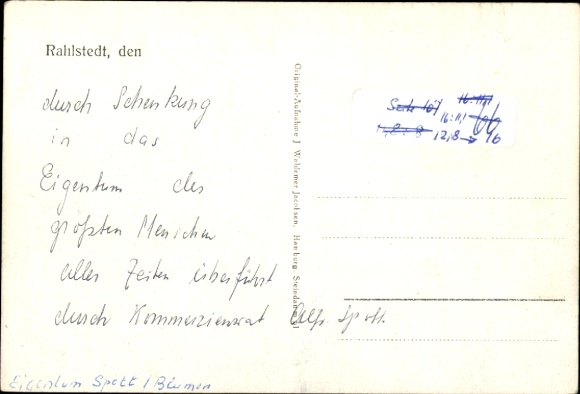 Rahlstedt, den
durch Schenkung
in das
Eigentum des
größten Menschen
aller Zeiten überführt
durch Kommerzienrat Alfr. Spott.
Eigentum Spott / Bäumen
Original-Aufnahme J Waldemar Jacobsen, Hamburg Steindamm
16:11,1
Seite 107
16:11,1 66
12,8 → 96